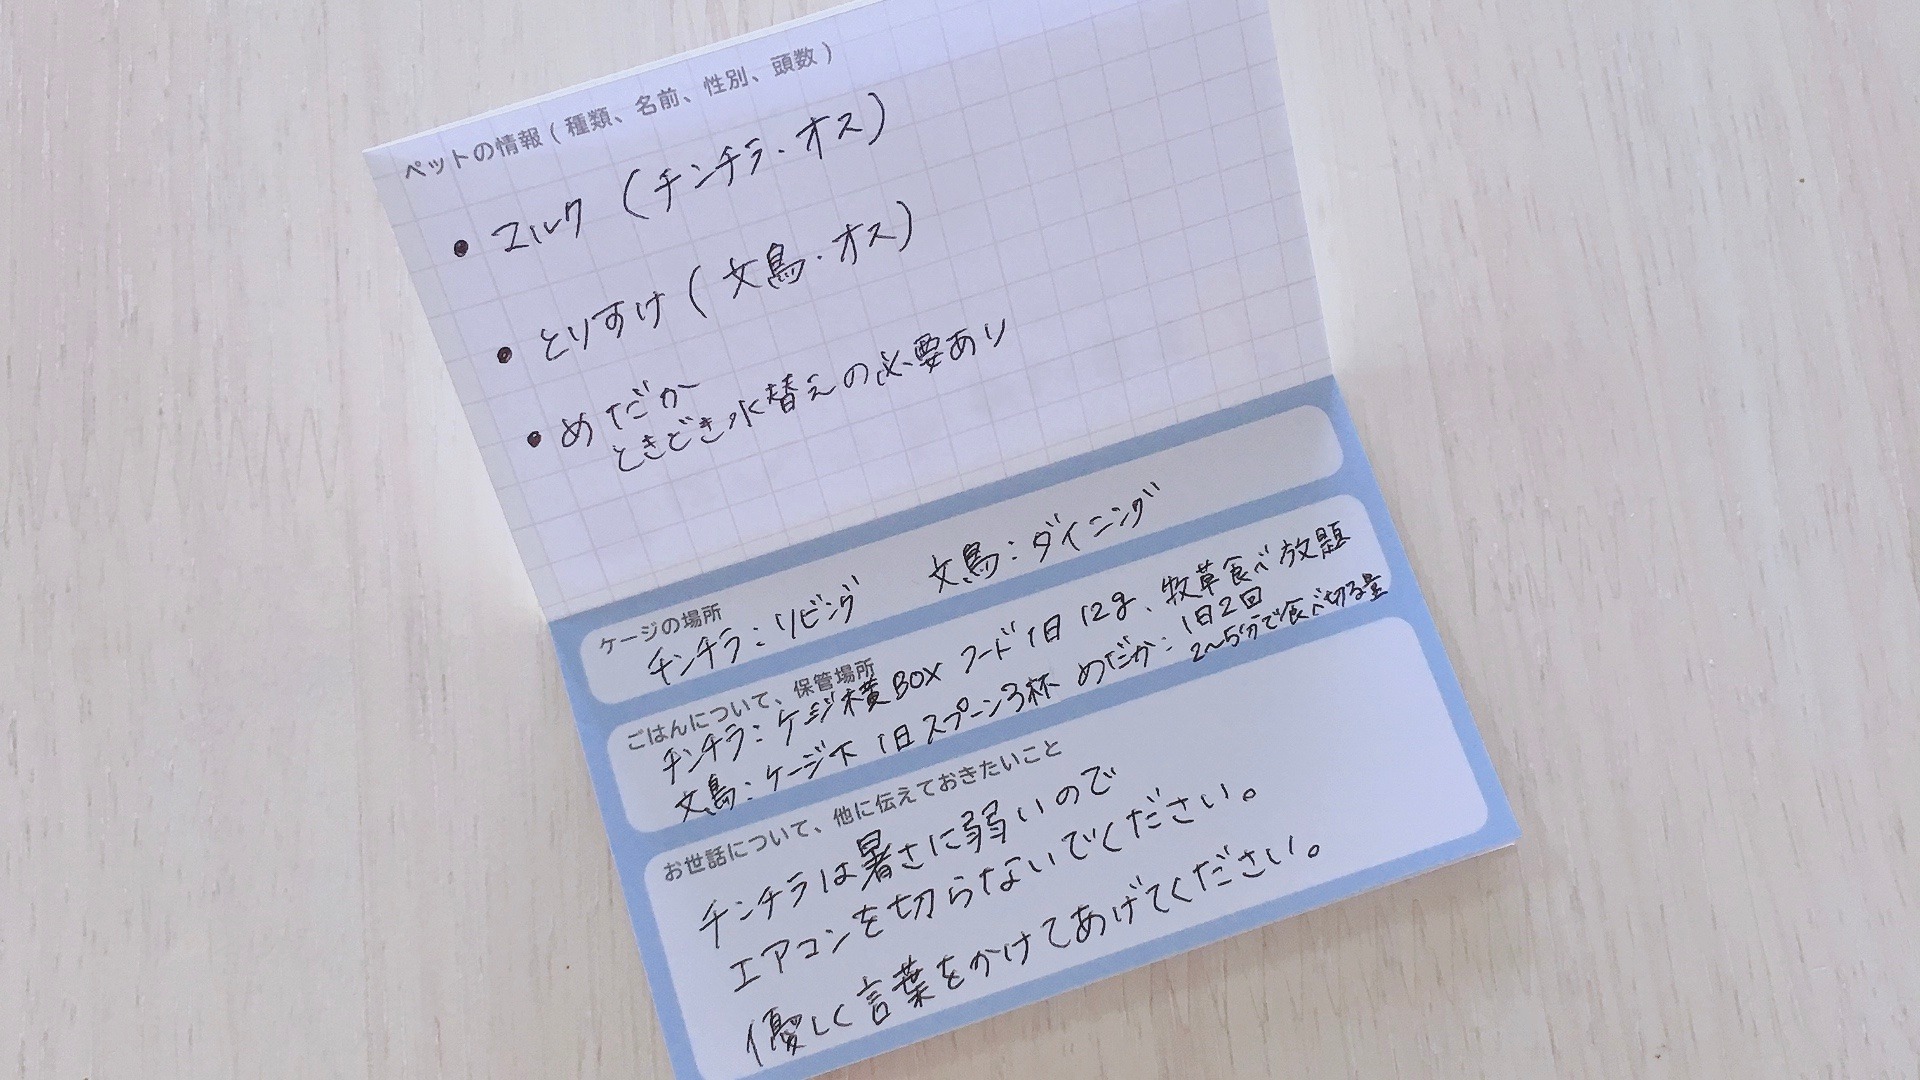 ペットの情報(種類、名前、性別、頭数)
• コルク (チンチラ・オス)
• とりすけ (文鳥・オス)
• めだか
ときどき水替えの必要あり
ケージの場所
チンチラ:リビング 文鳥:ダイニング
ごはんについて、保管場所
チンチラ:ケージ横BOX フード1日12g、牧草食べ放題
文鳥:ケージ下 1日スプーン3杯 めだか:1日2回
2〜5分で食べ切る量
お世話について、他に伝えておきたいこと
チンチラは暑さに弱いので
エアコンを切らないでください。
優しく言葉をかけてあげてください。